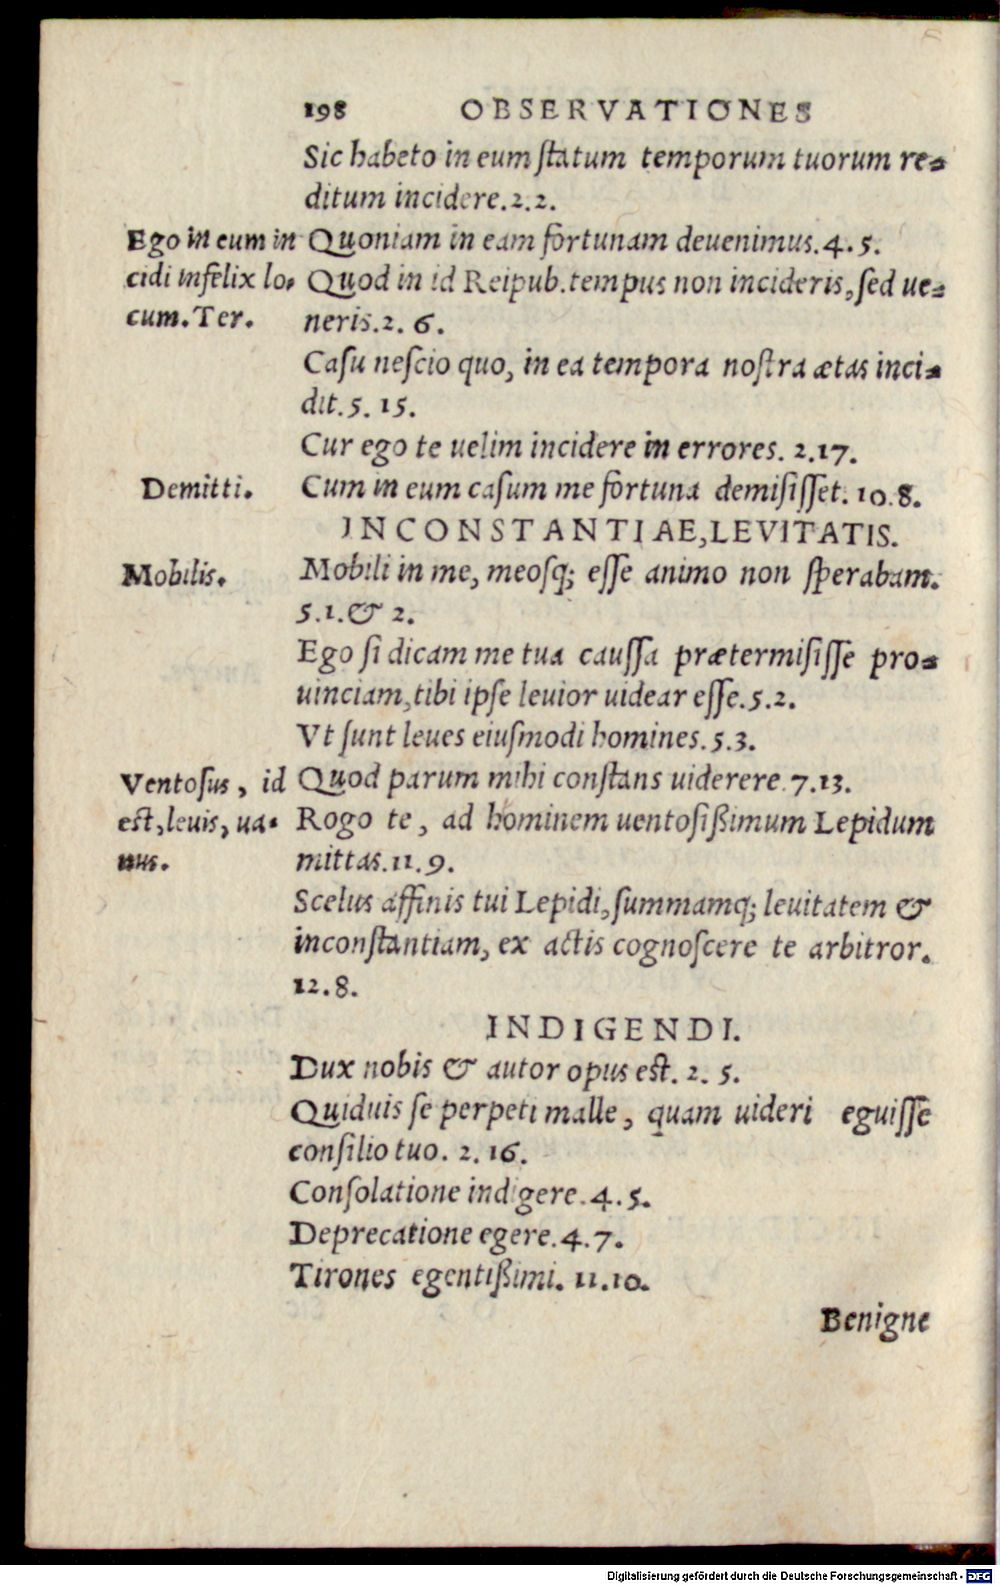 198 OBSERVATIONES
Sic habeto in eum ſtatum temporum tuorum re-
ditum incidere.2.2.
Ego in eum in
cidi infelix lo-
cum.Ter.
Quoniam in eam fortunam deuenimus.4.5.
Quod in id Reipub.tempus non incideris,ſed ue-
neris.2. 6.
Caſu neſcio quo, in ea tempora noſtra ætas inci-
dit.5. 15.
Cur ego te uelim incidere in errores. 2.17.
Demitti.
Cum in eum caſum me fortuna demiſiſſet. 10.8.
INCONSTANTIAE,LEVITATIS.
Mobilis.
Mobili in me, meoſq; eſſe animo non ſperabam.
5.1.& 2.
Ego ſi dicam me tua cauſſa prætermiſiſſe pro-
uinciam,tibi ipſe leuior uidear eſſe.5.2.
Vt ſunt leues eiuſmodi homines.5.3.
Ventoſus, id
est,leuis, ua-
nus.
Quod parum mihi conſtans uiderere.7.13.
Rogo te, ad hominem uentoſiſſimum Lepidum
mittas.11.9.
Scelus affinis tui Lepidi,ſummamq; leuitatem &
inconſtantiam, ex actis cognoſcere te arbitror.
12.8.
INDIGENDI.
Dux nobis & autor opus eſt. 2. 5.
Quiduis ſe perpeti malle, quam uideri eguiſſe
conſilio tuo. 2. 16.
Conſolatione indigere.4.5.
Deprecatione egere.4.7.
Tirones egentißimi. 11.10.
Benigne
Digitalisierung gefördert durch die Deutsche Forschungsgemeinschaft - DFG